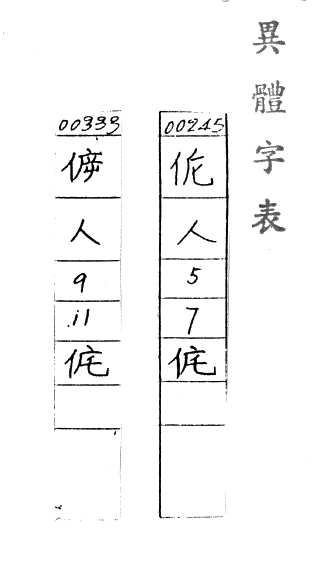 異體字表
00245
人
5
7
侂
00333
人
9
11
侂